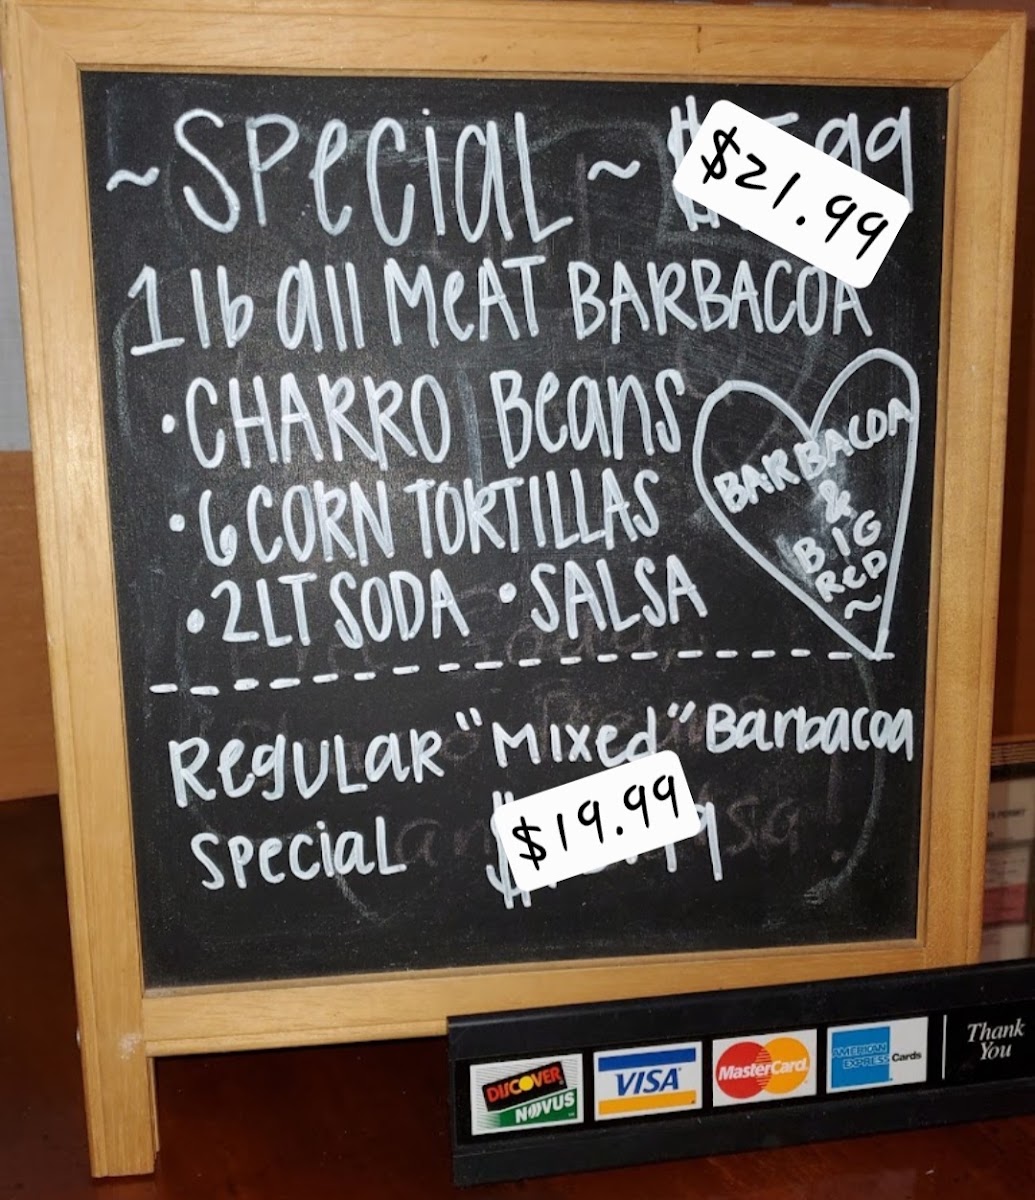 ~ Special ~ $21.99
1 lb all MeAT BARBACOA
• CHARRO Beans
• 6 CORN TORTILLAS
• 2LT SODA • SALSA
BARBACOA
&
BIG
ReD
~
Regular "Mixed" Barbacoa
Special $19.99
DISCOVER
NOVUS
VISA
MasterCard
AMERICAN
EXPRESS Cards
Thank
You